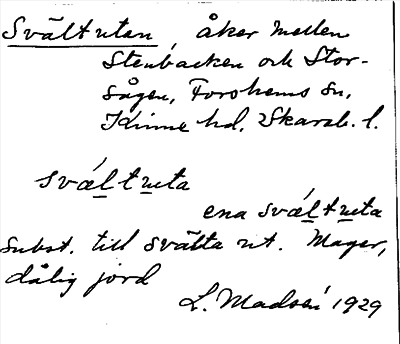 Svältutan, åker mellen
Stenbacken och Stor-
sågen, Forshems sn,
Kinne hd, Skarab. l.
svǽltuta
ena svǽltuta
subst. till svälta ut. Mager,
dålig jord
L. Madsén 1929